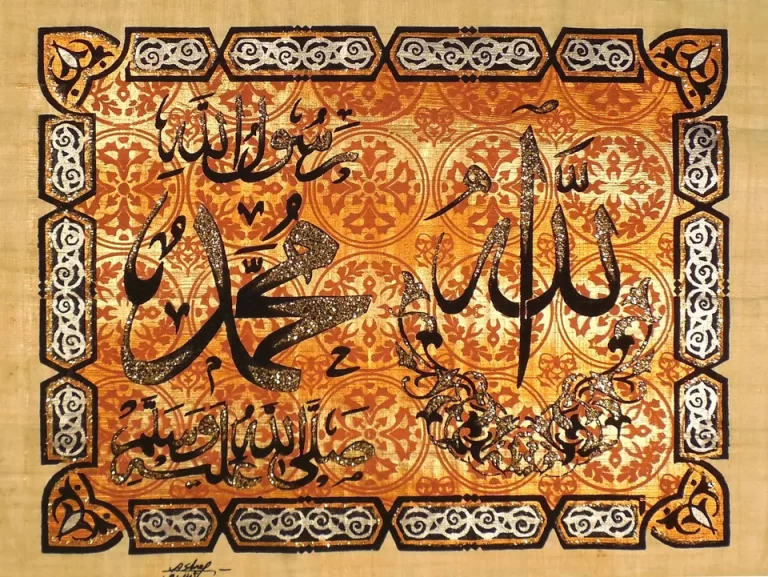 الله
رسول الله
محمد
صلى الله عليه وسلم